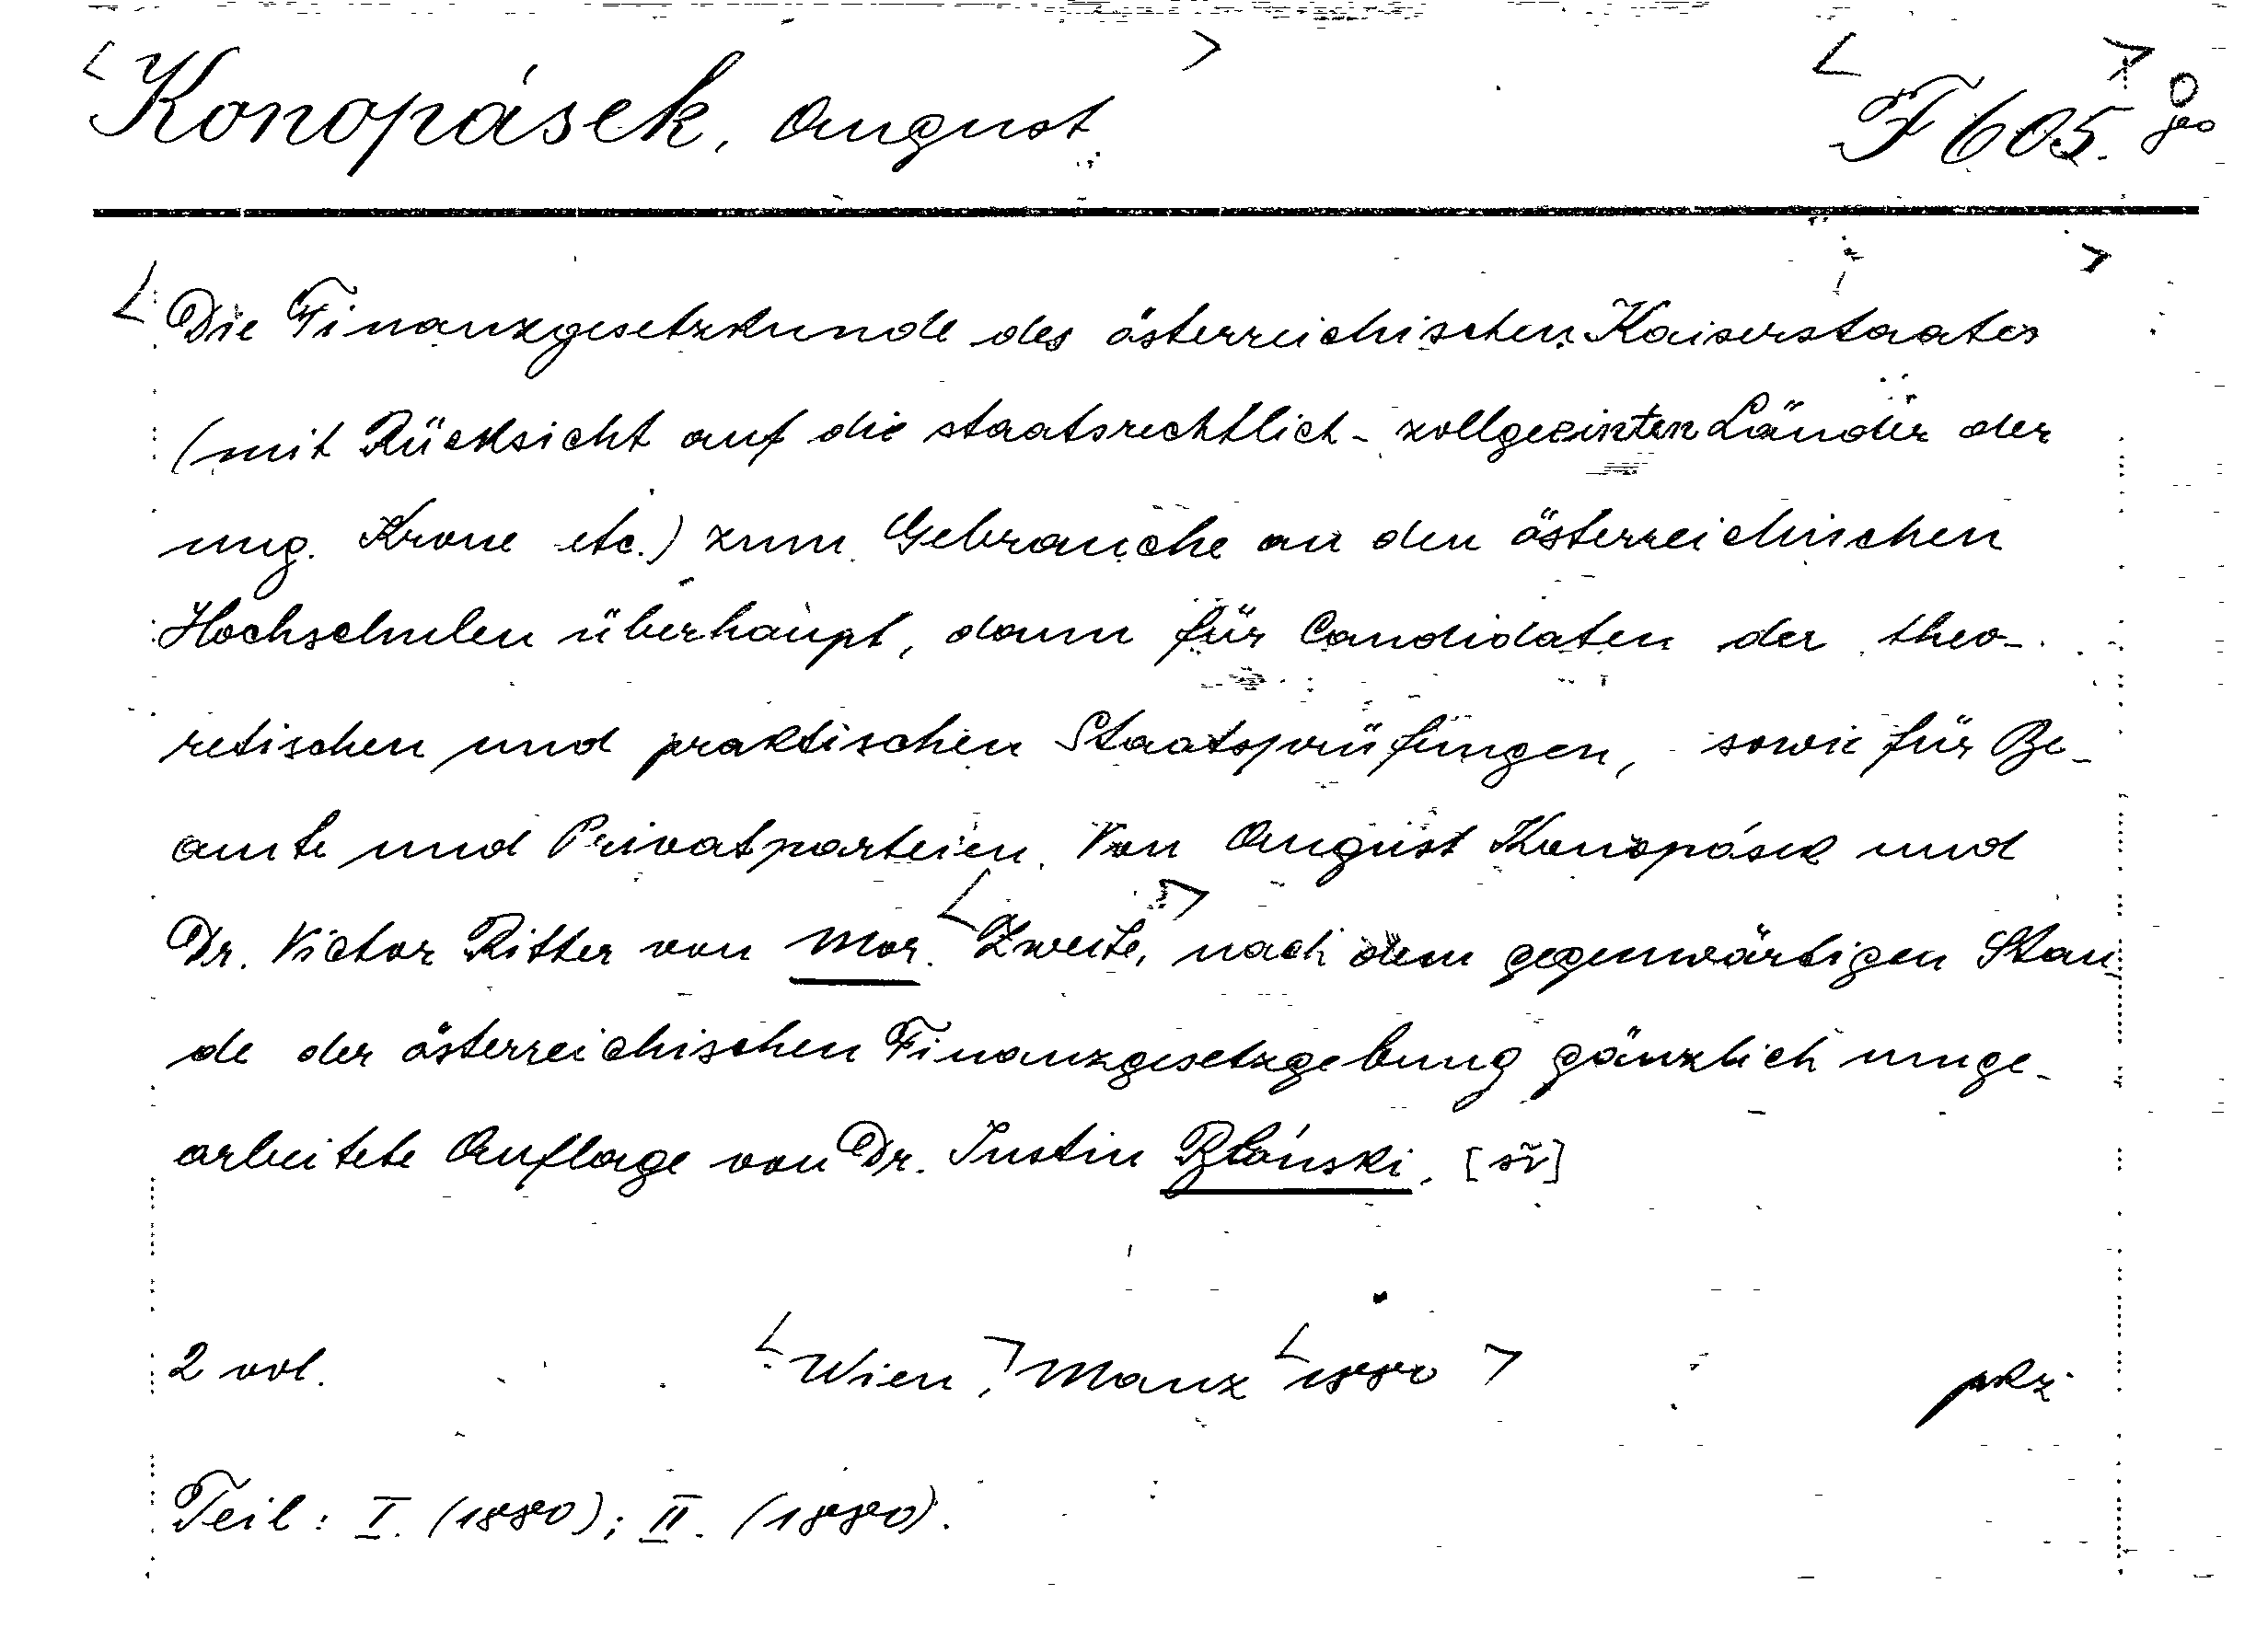 <Konopásek, August> <F 605.>
Die Finanzgesetzkunde des österreichischen Kaiserstaates>
(mit Rücksicht auf die staatsrechtlich-zollgeeinten Länder der
ung. Krone etc.) zum Gebrauche an den österreichischen
Hochschulen überhaupt, dann für Candidaten der theo-
retischen und praktischen Staatsprüfungen, sowie für Be-
amte und Privatparteien. Von August Konopásek und
Dr. Victor Ritter von Mor. <Zweite,> nach dem gegenwärtigen Stan
de der österreichischen Finanzgesetzgebung gänzlich umge-
arbeitete Auflage von Dr. Justin Błoński.
2 vol. <Wien,> Manz <1880>
Teil: I. (1880); II. (1880).